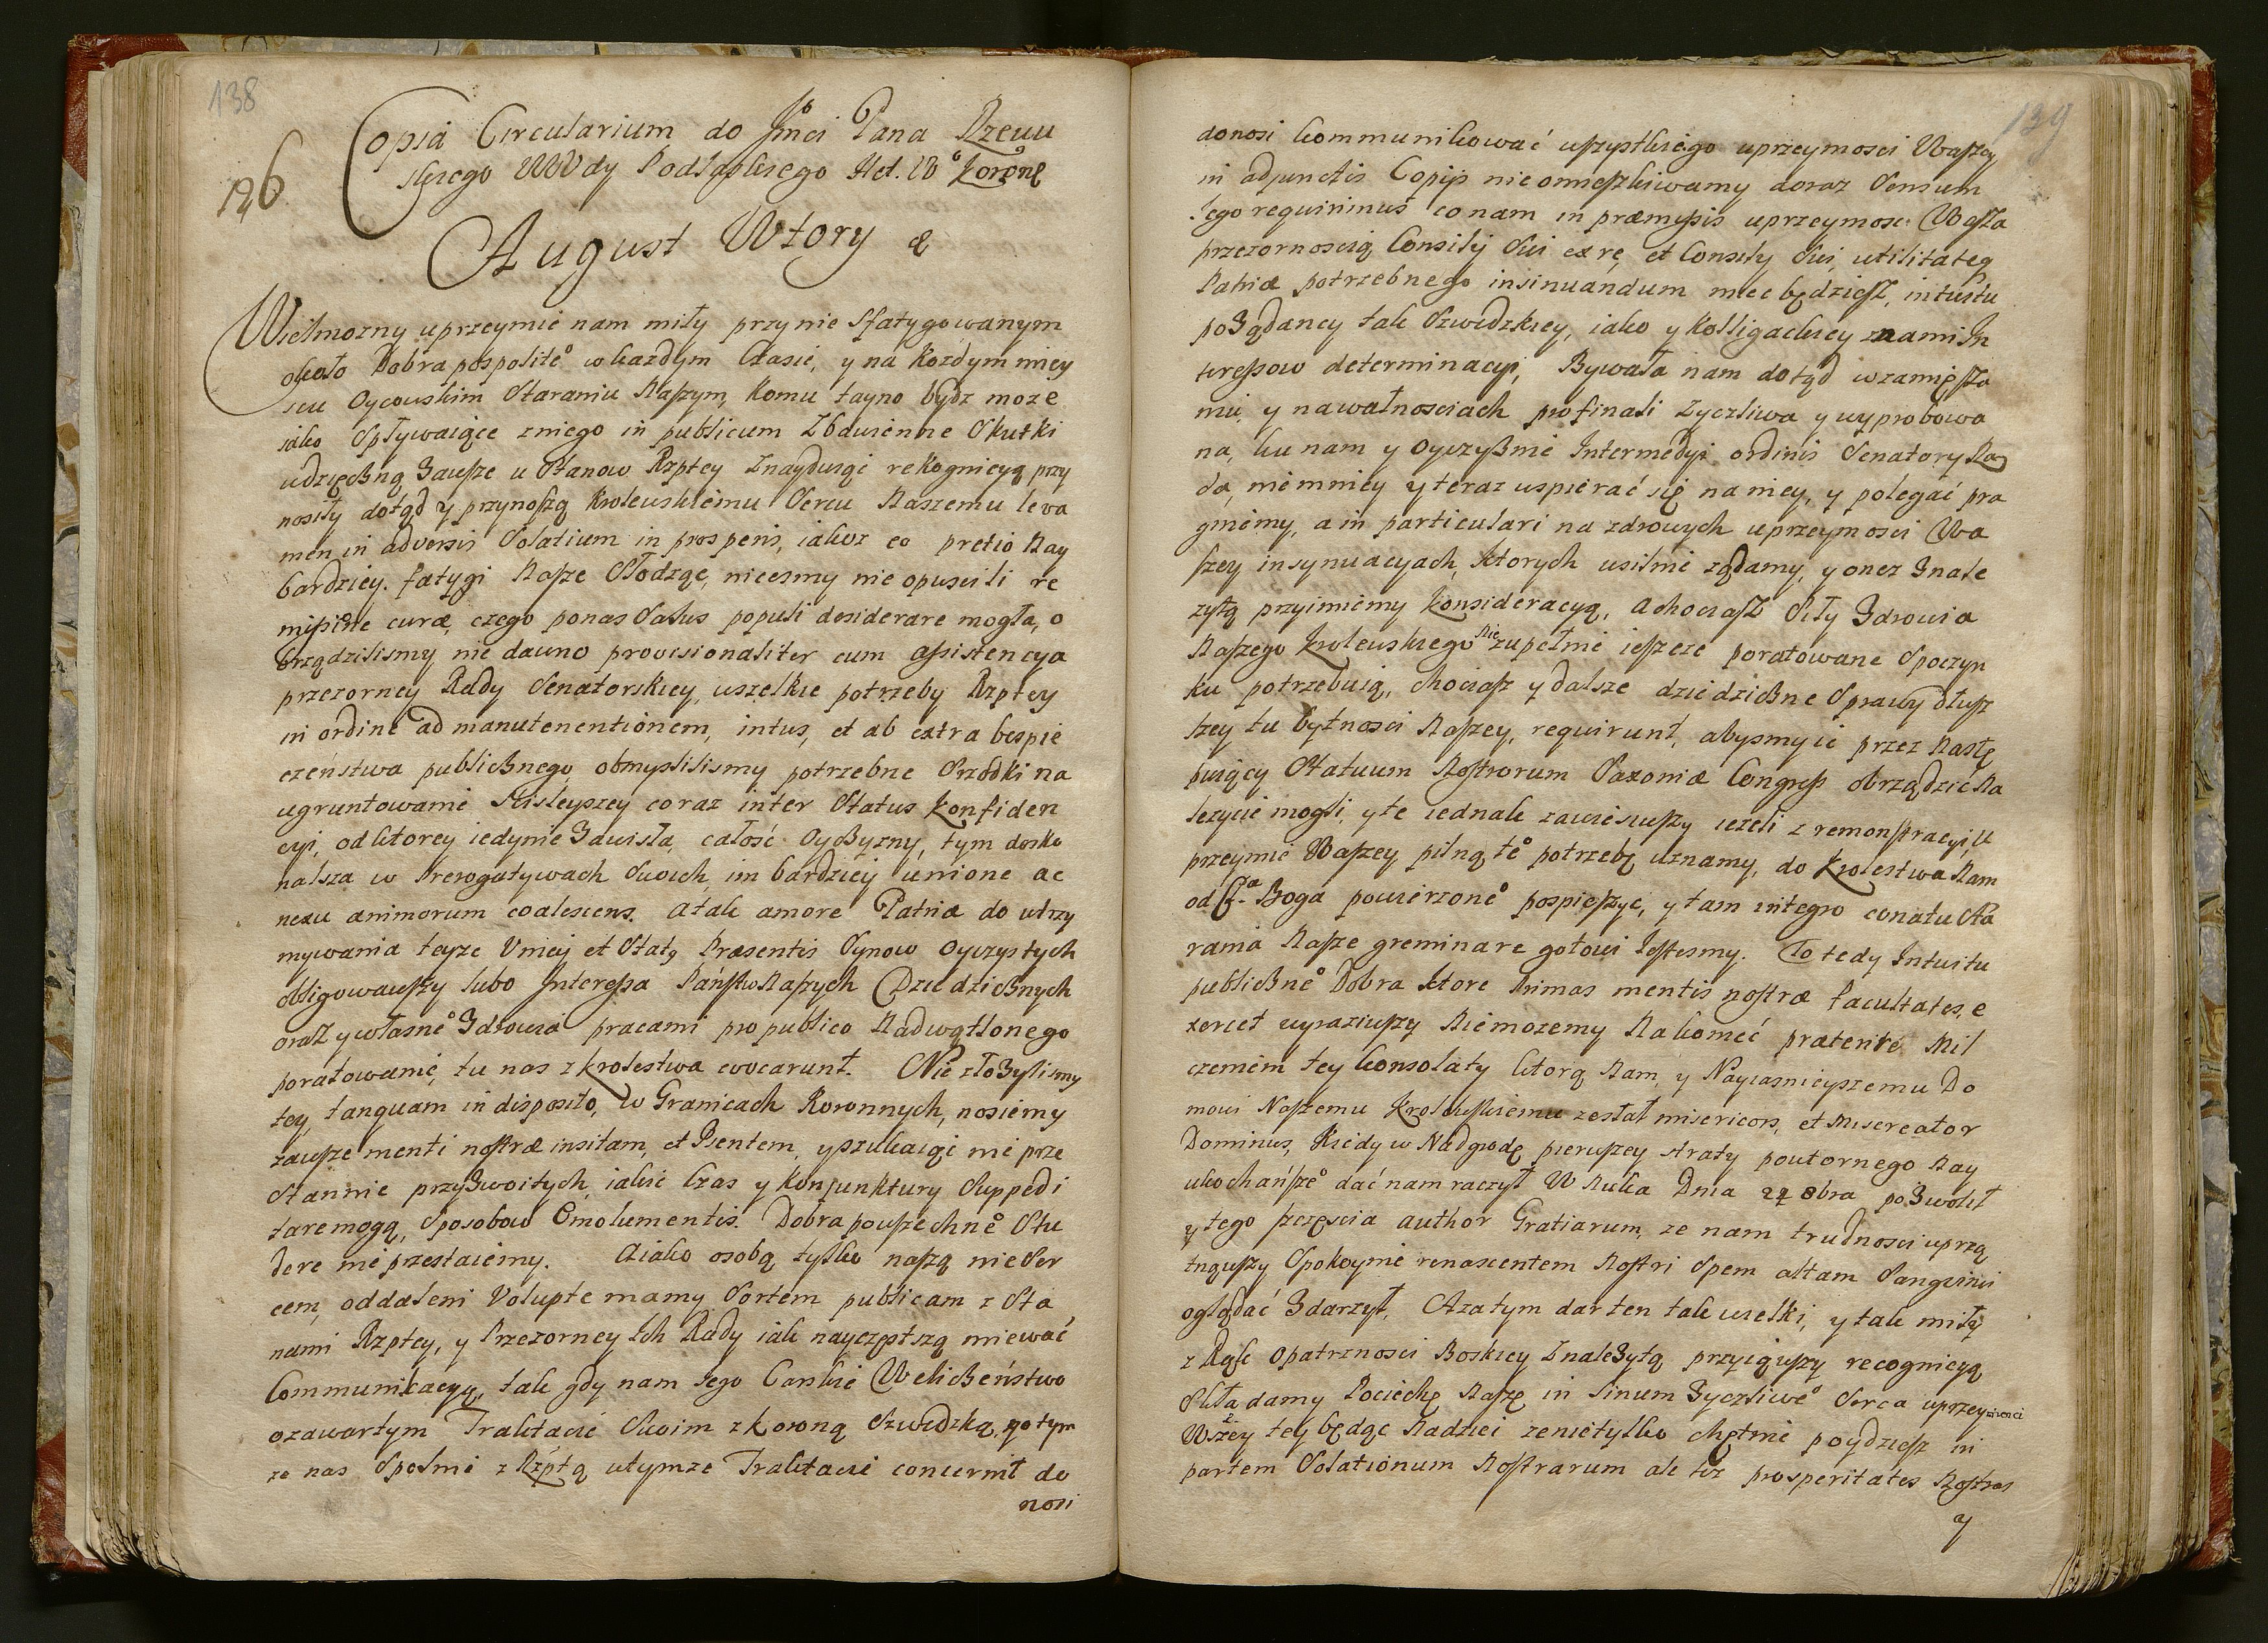 138
126
Copia Circularium do Jmci Pana Rzewu
skiego WWdy Podlaskiego Het. W° Koronę
August Wtory &
Wielmozny uprzeymie nam miły przy nie sfatygowanym
około Dobra pospolite° w kazdym Czasie, y na Kozdym miey
scu Oycowskim Staraniu Naszym, Komu tayno bydz moze
iako Spływaiące zniego in publicum Zbawienne Skutki
wdzięczną zawsze u Stanow Rzptey Znayduiąc rekognicyą przy
nosiły dotąd y przynoszą Krolewskiemu Sercu Naszemu leva
men in adversis Solatium in prosperis, iakoz eo pretio Nay
bardziey. fatygi Nasze Słodząc, niecsmy nie opuscili re
missione curæ, czego ponas Salus populi desiderare mogła, o
brządzilismy nie dawno provisionaliter cum assistencya
przezorney Rady Senatorskiey, uszelkie potrzeby Rzptey
in ordine ad manutenentionem, intus, et ab extra bespie
czeństwa publicznego, obmyslilismy potrzebne Srzodki na
ugruntowanie Scisleyszey coraz inter Status Konfiden
cyi, od ktorey iedynie Zawisła, całość Oyczyzny, tym dosko
nalsza w Prerogatywach Swoich, im bardziey unione ac
nexu animorum coalescens. A tak amore Patriæ do utrzy
mywania teyze Uniey et Statq Præsentis Synow Oyczystych
obligowawszy lubo Interessa Państw Naszych Dziedzicznych
oraz y własne° Zdrowia pracami pro publico Nadwątlonego
poratowanie, tu nas z krolestwa evocarunt. Nie złozylismy
tey, tanquam in disposito, w Granicach Koronnych, nosiemy
zawsze menti nostræ insitam, et Pientem, y szukaiąc nie prze
stannie przyzwoitych iakie Czas y Konjunktury Suppedi
tare mogą, Sposobow Emolumentis. Dobra powszechne° Stu
dere nie przestaiemy. A iako osobą tylko naszą nie Ser
cem, oddaleni Volupte mamy Sortem publicam z Sta
nami Rzptey, y Przezorney Ich Rady iak nayczęstszą miewać
Communicacyą, tak gdy nam Jego Carskie Weliczeństwo
ozawartym Traktacie Swoim z Koroną Szwedzką, yotym
ze nas Spolnie z Rzptą wtymze Traktacie concernit do
nosi
139
donosi kommunikować wszystkiego uprzeymosci Waszey
in adjunctis Copijs nieomieszkiwamy doraz Sensum
Jego requirimus co nam in præmissis uprzeymosc Wasza
przezornoscią Consilij Sui ex re, et Consily Sui, utilitateq
Patriæ potrzebnego insinuandum miec będziesz, intuitu
poządaney tak Szwedzkiey, iako y Kolligackiey znami In
teressow determinacyi, Bywała nam dotąd wzamięsza
niu y nawałnosciach profinali Zyczliwa y wyprobowa
na, ku nam y Oyczyznie Intermedyi ordinis Senatory Ra
da, niemniey y teraz uspierać się na niey, y polegać pra
gniemy, a in particulari na zdrowych uprzeymosci Wa
szey insynuacyach, ktorych usilnie ządamy, y onez Znale
zytą przyimiemy Konsideracyą, Achociasz Siły Zdrowia
Naszego Krolewskiego nie zupełnie ieszcze poratowane Spoczyn
ku potrzebuią, chociasz y dalsze dziedziczne Sprawy dłusz
szey tu bytnosci Naszey, requirunt, abysmy ie przez Nastę
puiący Statuum Nostrorum Saxoniæ Congress obrządzić Na
lezycie mogli, y te iednak zawiesiwszy iezeli z remonstracyi, U
przeymie Waszey, pilną te° potrzebę uznamy, do Krolestwa Nam
od Pa. Boga powierzone° pospieszyc, y tam integro conatu Sta
rania Nasze greminare gotowi Jestesmy. To tedy Intuitu
publiczne° Dobra ktore Primas mentis nostræ facultates, e
xercet wyraziwszy Niemozemy Nakoniec præterire Mil
czeniem tey konsolaty ktorą Nam, y Nayiasnieyszemu Do
mowi Naszemu Krolewskiemu zesłał misericors, et Misereator
Dominus, Kiedy w Nadgrodę pierwszey straty powtornego Nay
ukochańsze° dać nam raczył Wnuka Dnia 24 8bra pozwolił
y tego szczęscia author Gratiarum, ze nam trudnosci uprzą
tnąwszy Spokoynie renascentem Nostri Spem altam Sanguinis
oglądać Zdarzył, Azatym dar ten tak wielki, y tak miły
z Ręke Opatrznosci Boskiey Znalezytą przyiąwszy recognicyą
Składamy Pociechę Naszę in Sinum Zyczliwe° Serca uprzeymosci
Wszey tey będąc Nadziei zenietylko chętnie poydziesz in
partem Solationum Nostrarum ale tez prosperitates Nostras
y